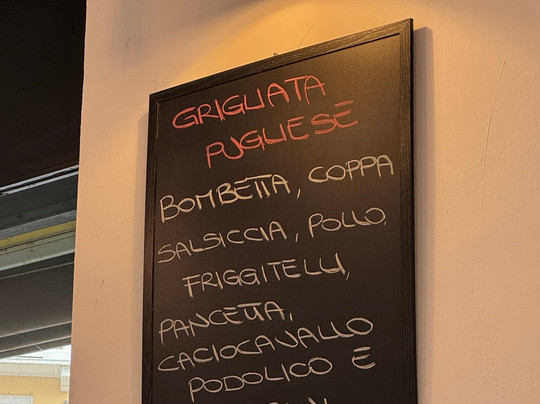 GRIGLIATA
PUGLIESE
BOMBETTA, COPPA
SALSICCIA, POLLO,
FRIGGITELLI,
PANCETTA,
CACIOCAVALLO
PODOLICO E